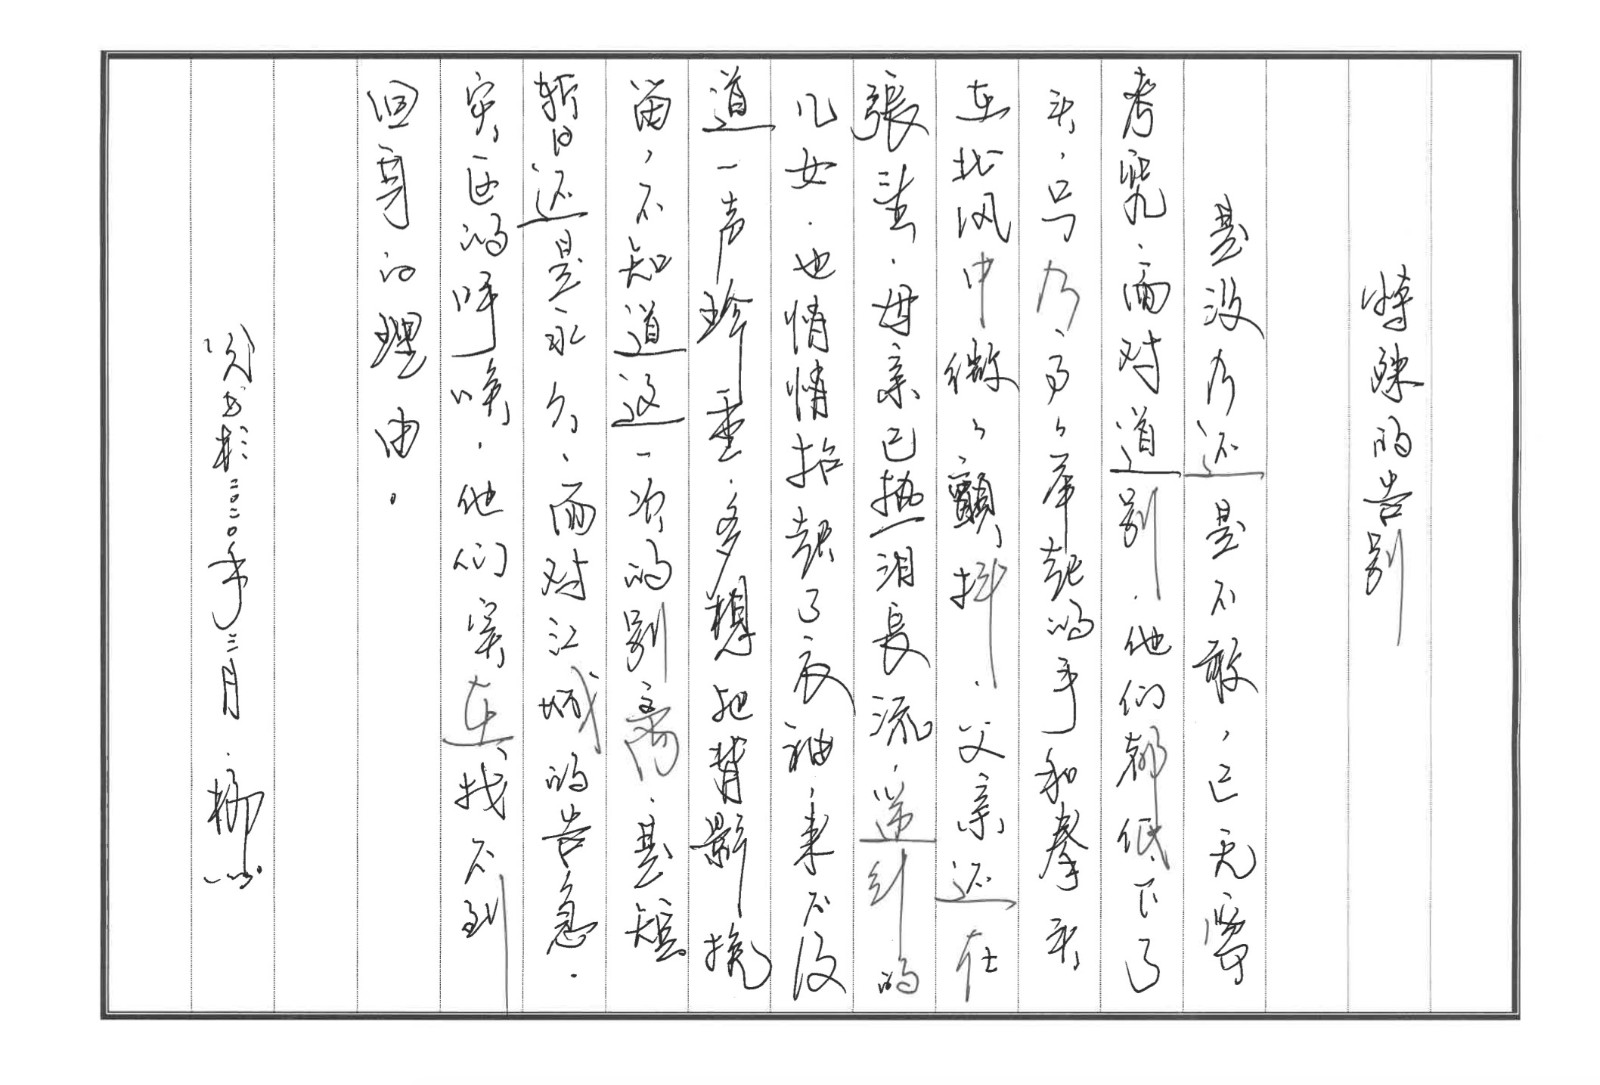 特殊的告别
是没有还是不敢，已无需
考究，面对道别，他们都低下了
头，只有高高举起的手和拳头
在北风中微微颤抖，父亲还在
張望，母亲已热泪長流，逆到的
儿女，也悄悄抬起了衣袖，来不及
道一声珍重，多想把背影挽
留，不知道这一次的别离，是短
暂还是永久，面对江城的告急，
灾区的呼唤，他们实在找不到
回身的理由。
二〇二〇年二月，柳